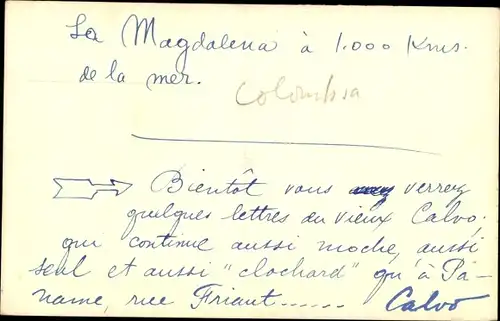 La Magdalena à 1.000 Kms.
de la mer.
Colombia
Bientôt vous verrez
quelques lettres du vieux Calvo,
qui continue aussi moche, aussi
seul et aussi "clochard" qu'à Pa-
name, rue Friant......
Calvo